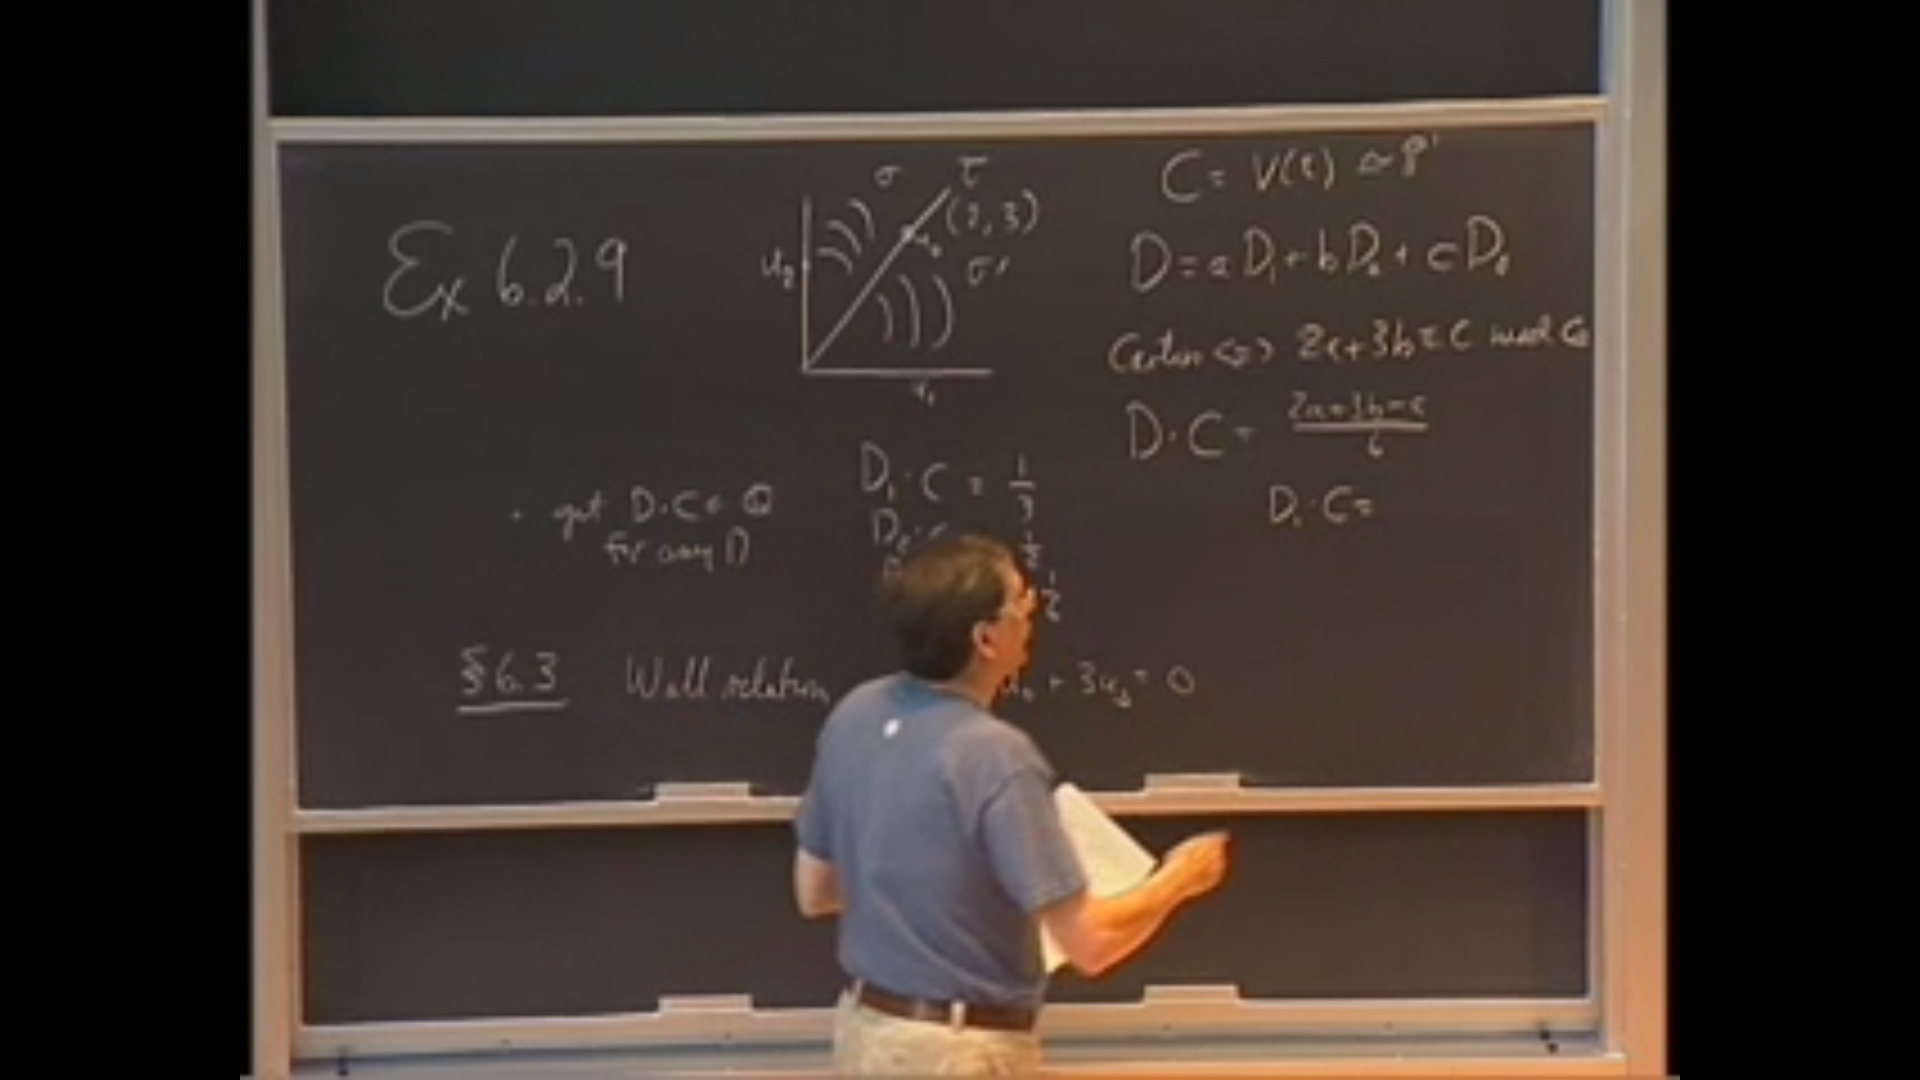 Ex 6.2.9
σ
τ
(2, 3)
u₀
σ'
u₂
u₁
C = V(τ) ≃ P¹
D = a D₁ + b D₂ + c D₀
Cartier ⇔ 2a+3b ≡ c mod 6
D · C = (2a+3b-c)/6
D₁ · C =
· get D·C ∈ Q
for any D
D₁ · C = 1/3
D₂ · C
1/2
1/6
§6.3 Wall relation
u₀ + 3u₂ = 0